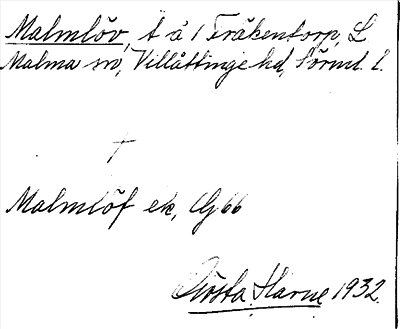 Malmlöv, t å 1 Träkentorp, L
Malma sn, Villåttinge hd, Sörml. l.
†
Malmlöf ek, G 66
Gösta Harne 1932.